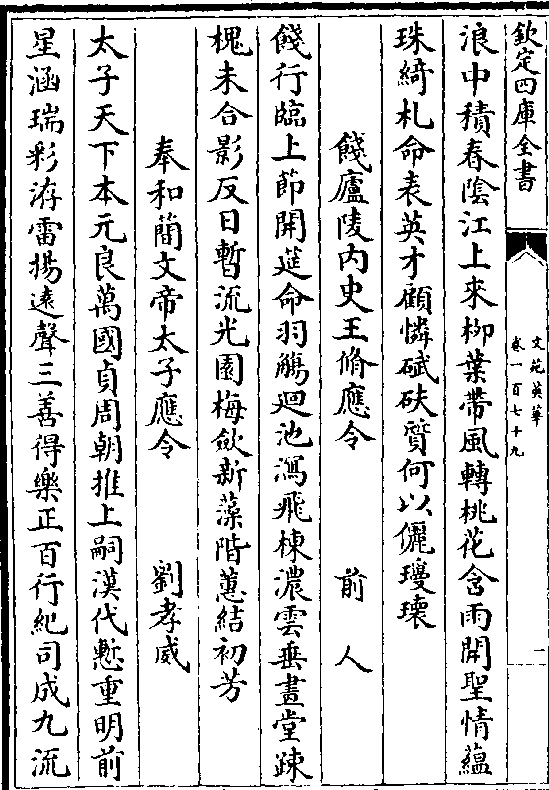 欽定四庫全書
文苑英華
卷一百七十九
一
浪中積春陰江上來柳葉帶風轉桃花含雨開聖情蘊
珠綺札命表英才顧憐碔砆質何以儷瓊瓌
餞廬陵内史王脩應令 前人
餞行臨上節開筵命羽觴迴池瀉飛棟濃雲垂畫堂踈
槐未合影反日暫流光園梅斂新藻階蕙結初芳
奉和簡文帝太子應令 劉孝威
太子天下本元良萬國貞周朝推上嗣漢代慙重明前
星涵瑞彩洊雷揚遠聲三善得樂正百行紀司成九流